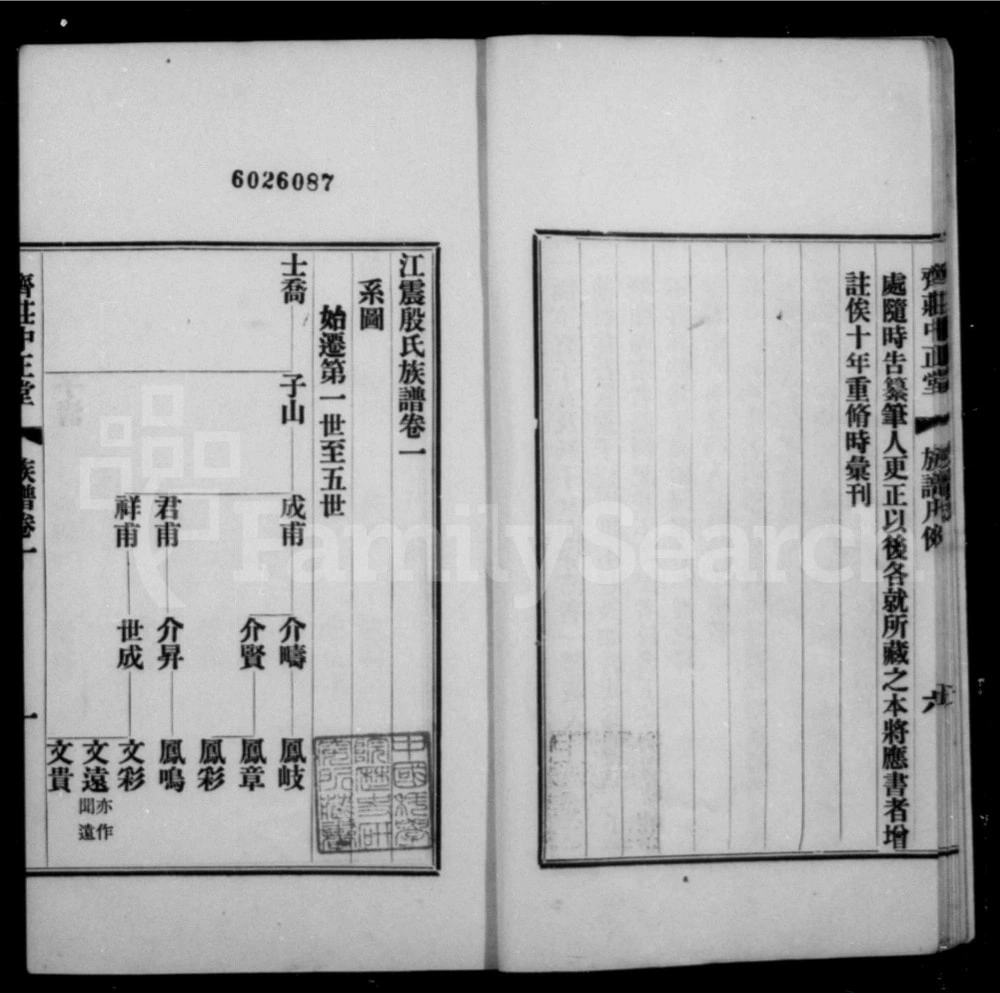 齊莊中正堂
處隨時告纂筆人更正以後各就所藏之本將應書者增
註俟十年重脩時彙刊
6026087
江震殷氏族譜卷一
系圖
始遷第一世至五世
士喬
子山
成甫
君甫
祥甫
介疇
介賢
介昇
世成
鳳岐
鳳章
鳳彩
鳳鳴
文彩
文遠 亦作聞遠
文貴
齊莊中正堂
族譜卷一
一
FamilySearch